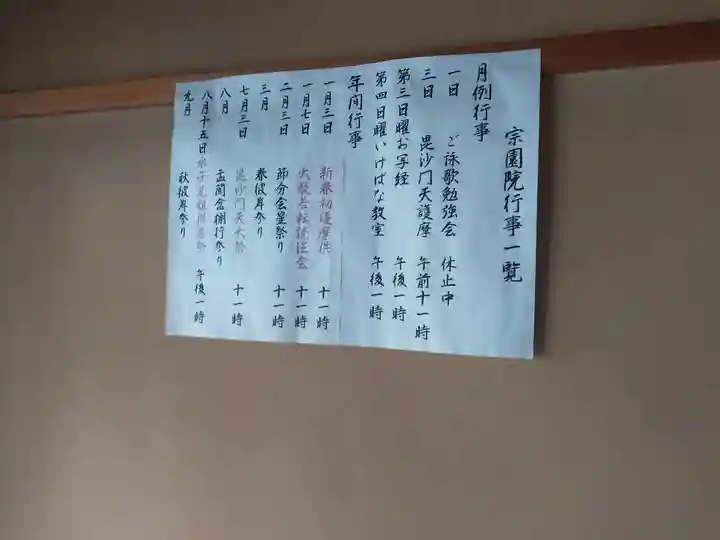 宗園院行事一覧
月例行事
一日 ご詠歌勉強会 休止中
三日 毘沙門天護摩 午前十一時
第三日曜お写経 午後一時
第四日曜いけばな教室 午後一時
年間行事
一月三日 新春初護摩供 十一時
一月七日 大般若転読法会 十一時
二月三日 節分会星祭り 十一時
三月 春彼岸参り
七月三日 毘沙門天大祭 十一時
八月 盂蘭盆棚行参り
八月十五日 水子 午後一時
九月 秋彼岸参り